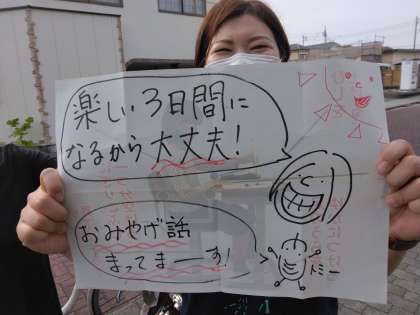 楽しい3日間に
なるから大丈夫!
おみやげ話
まってまーす!